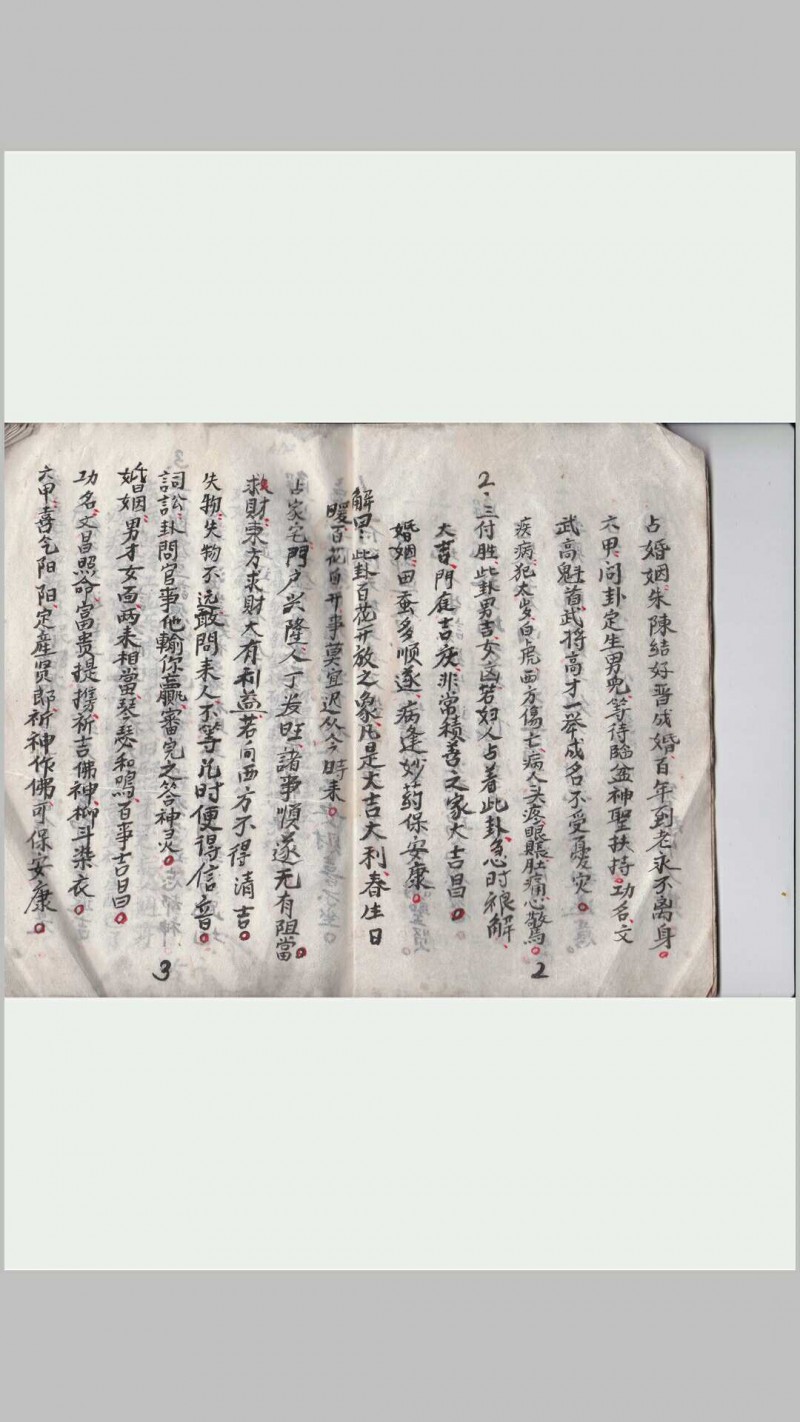 占婚姻、朱陳結好晋成婚、百年到老永不离身。
六甲、问卦定生男兒、等待臨盆神聖扶持。功名、文
武高魁首武将高才一举成名不受憂灾。
疾病、犯太岁、白虎、西方傷亡、病人头疼、眼賬肚痛心驚。
2、三付胜、此卦男吉、女凶若妇人占着此卦、急时禳解、
大吉、門庭吉庆非常積善之家大吉昌。
婚姻、田蚕多順遂、病逢妙药保安康。
2
解曰：此卦百花开放之象、凡是大吉大利、春生日
暖百花自开事莫宜迟从今時来。
占家宅、門户兴隆人丁发旺、諸事順遂无有阻當。
求財、東方求財大有利益、若向西方不得清吉。
失物、失物不远敢問来人不等几时便得信音。
詞訟、卦問官事他輸你贏、審完之答神灵。
婚姻、男才女面两来相當、琴瑟和鳴、百事吉昌。
功名、文昌照命富贵提携祈吉佛神、柳斗染衣。
六甲、喜气阳阳、定産贤郎、祈神作佛可保安康。
3